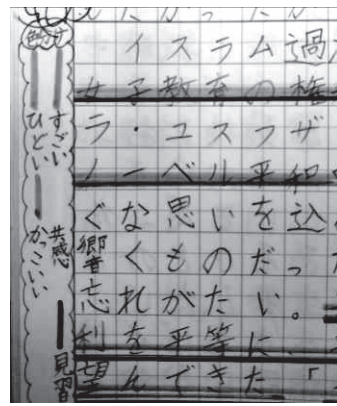 たかったか
イスラム過
女子教育の権
ラ・ユスフザ
ノーベル平和
ぐな思いを込
響くものだっ
忘れがたい。
利を平等に、
望んできた「
色分け
すごい
ひどい
共感
かっこいい
見習